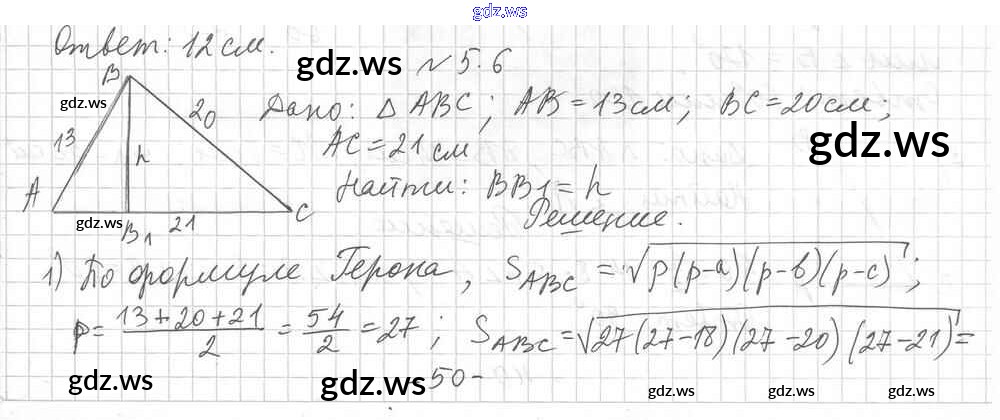 gdz.ws
Ответ: 12 см.
gdz.ws
№ 5.6
B
gdz.ws
20
Дано: △ ABC; AB = 13 см; BC = 20 см;
13
h
AC = 21 см
gdz.ws
A
Найти: BB₁ = h
C
gdz.ws
B₁
21
Решение.
1) По формуле Герона, S_ABC = √p(p-a)(p-b)(p-c);
p = (13+20+21)/2 = 54/2 = 27; S_ABC = √27(27-18)(27-20)(27-21) =
gdz.ws
gdz.ws
- 50 -
gdz.ws
gdz.ws
gdz.ws